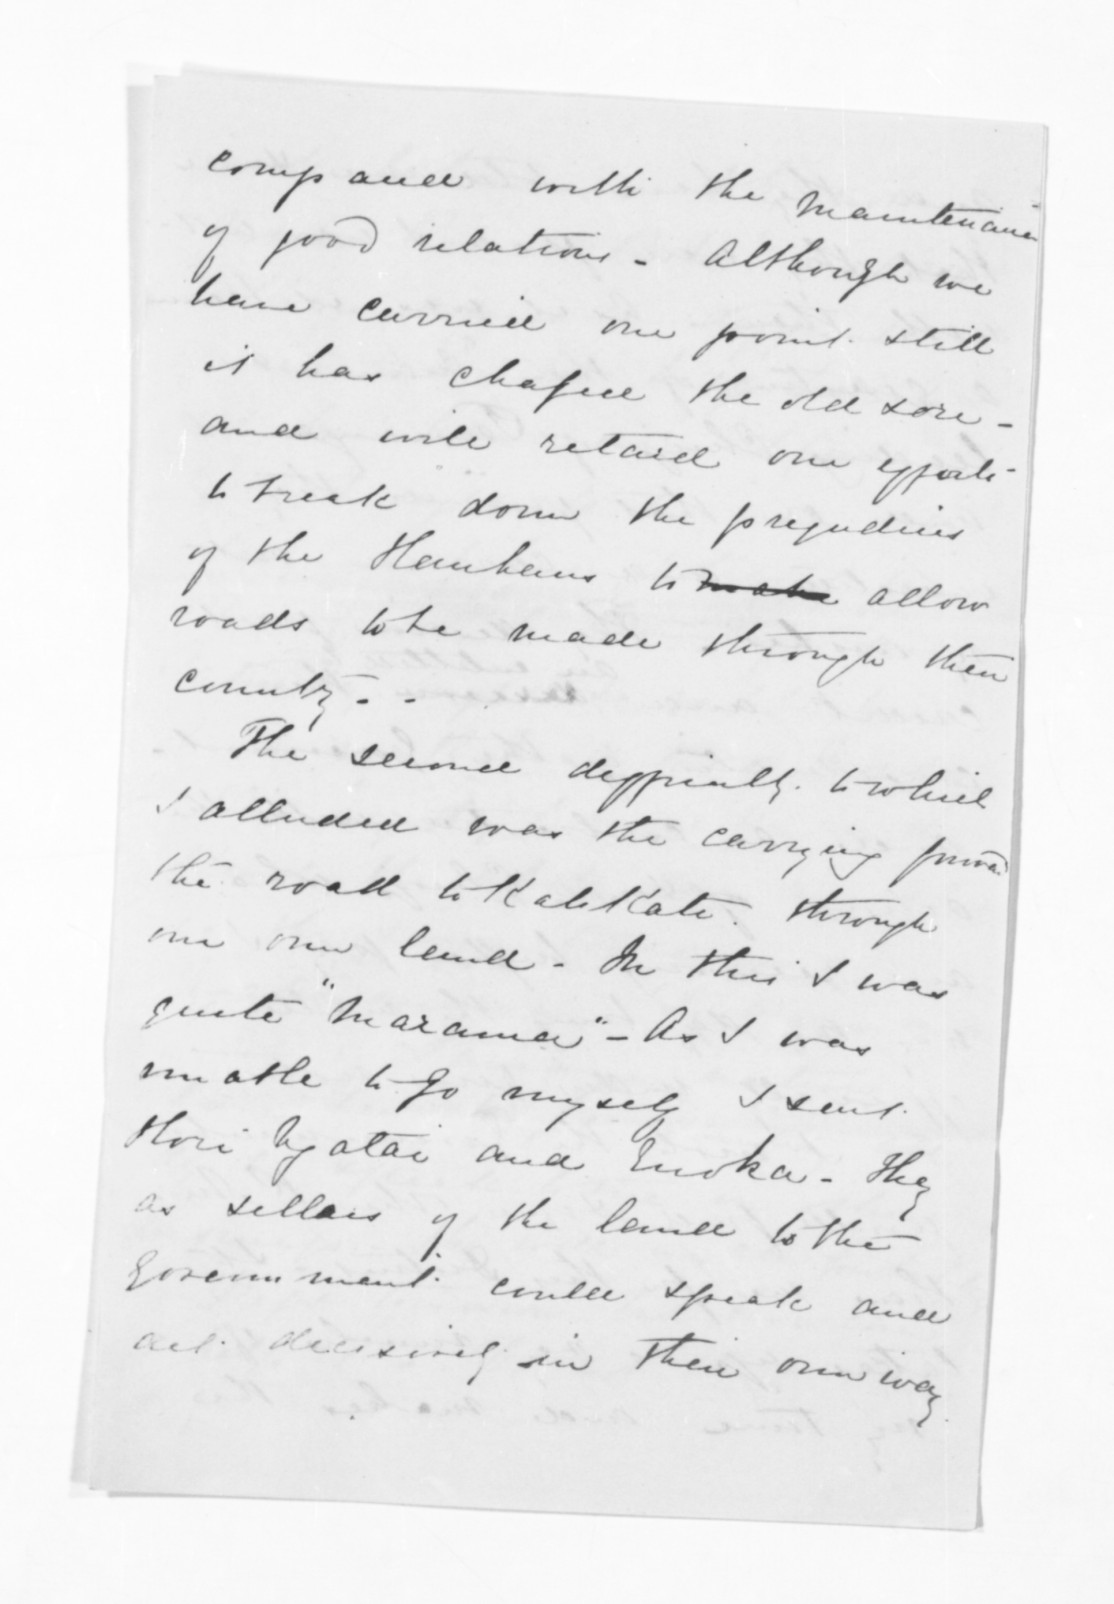 compared with the maintenance
of good relations - Although we
have carried our point still
it has chafed the old sore -
and will retard our efforts
to break down the prejudices
of the Hauhaus to make allow
roads to be made through their
country - -
The second difficulty to which
I alluded was the carrying forward
the road to KatiKati through
our own land - In this I was
quite "marama" - As I was
unable to go myself I sent
Hori Ngatai and Enoka - They
as sellers of the land to the
Government could speak and
act decisively in their own way